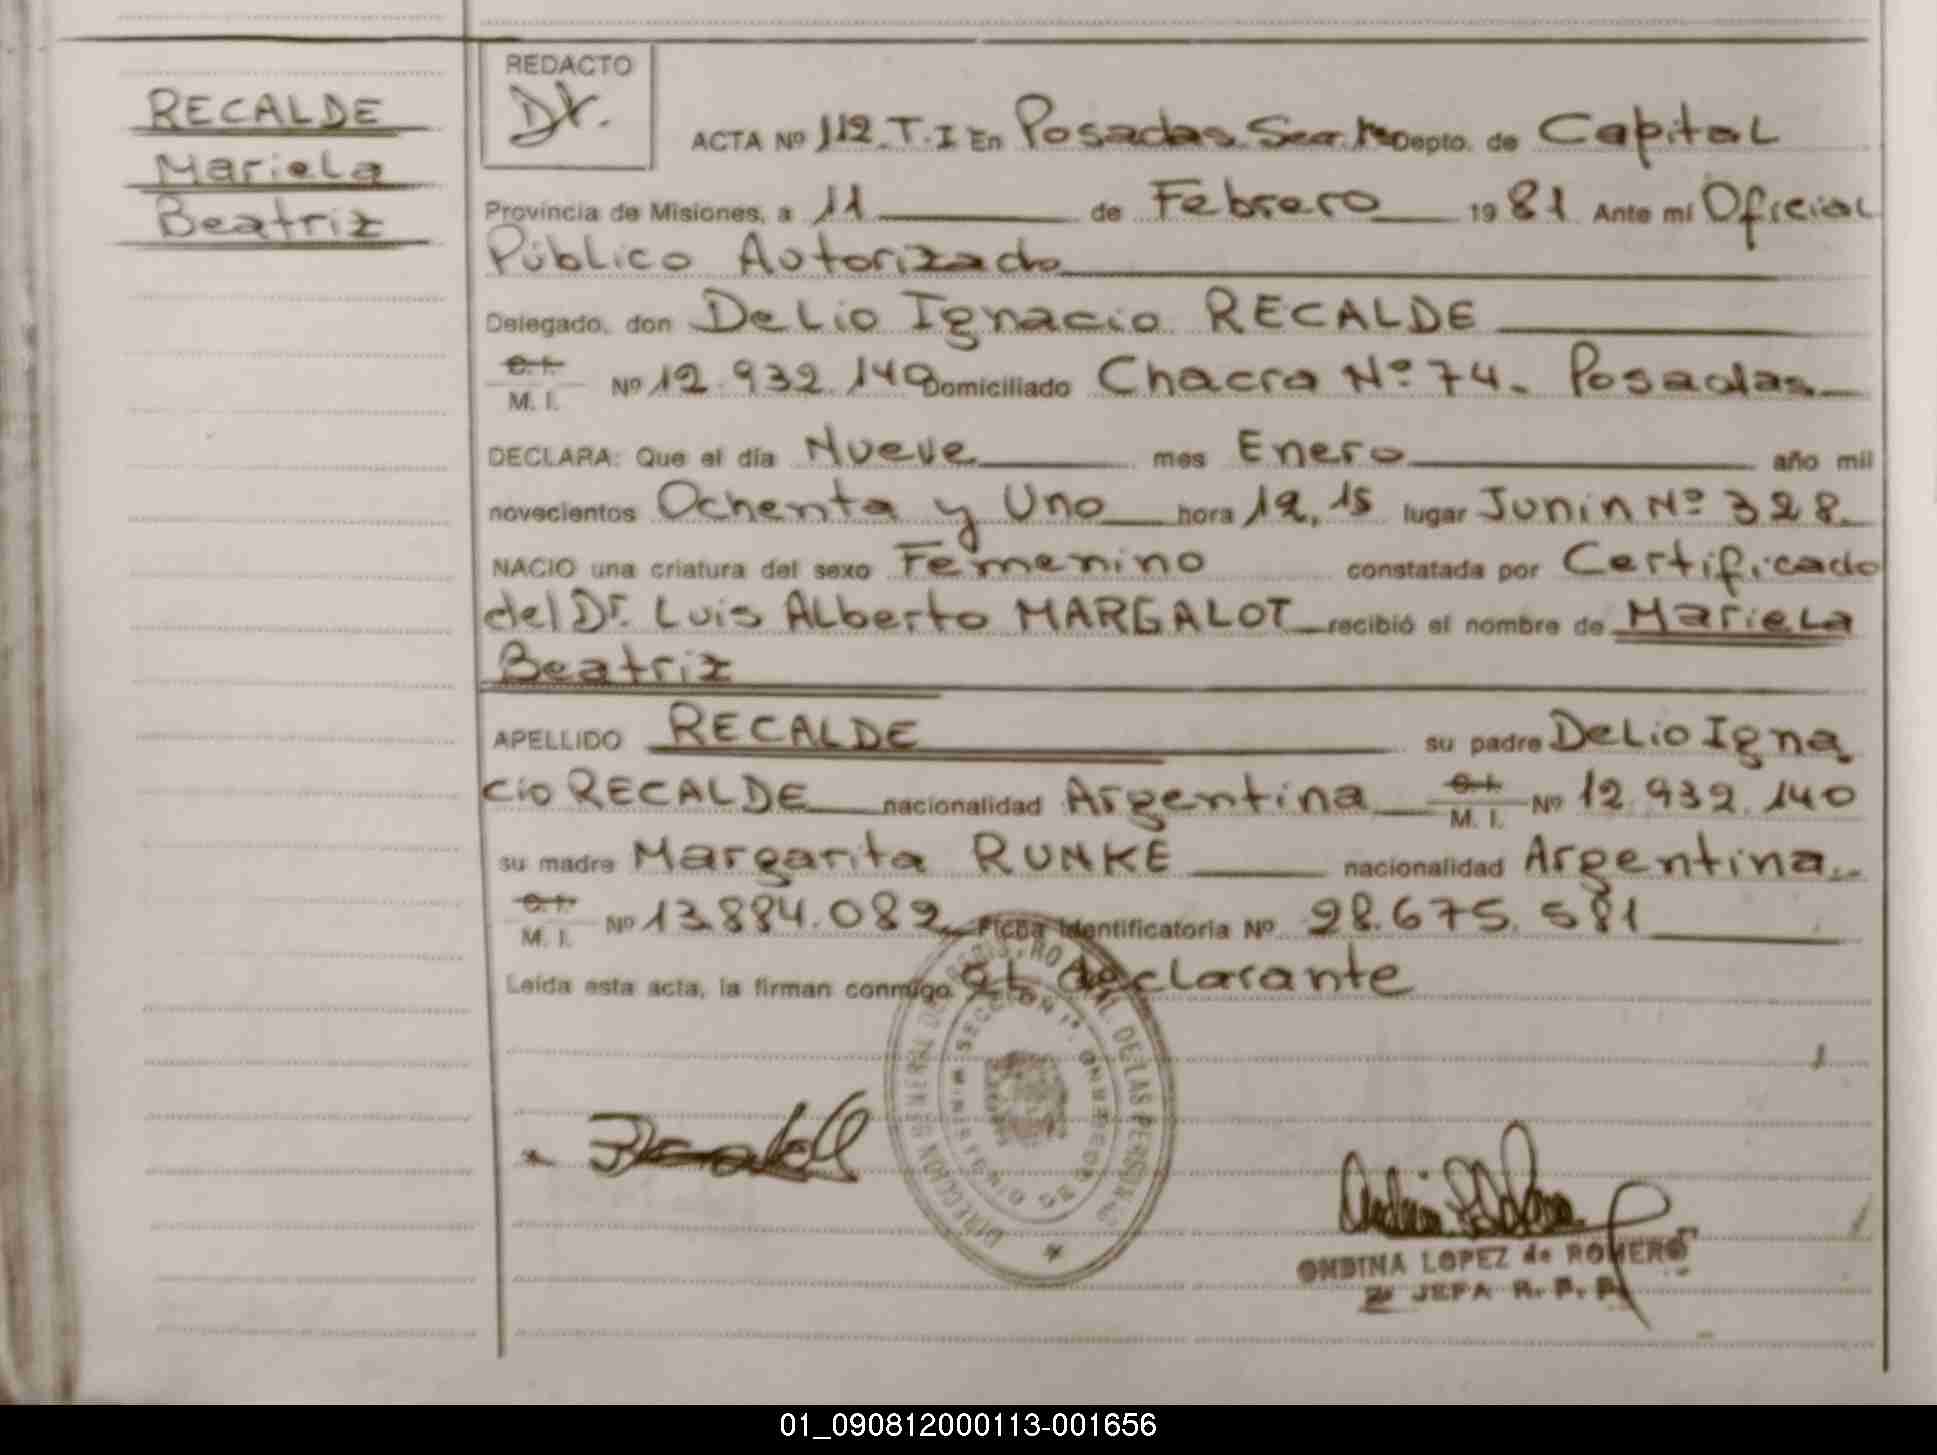 RECALDE
Mariela
Beatriz
REDACTO
ACTA Nº 112.T.I En Posadas Sec. 1ª Depto. de Capital
Provincia de Misiones, a 11 de Febrero 1981 Ante mí Oficial
Público Autorizado
Delegado, don Delio Ignacio RECALDE
C.I.
M. I. Nº 12.932.140 Domiciliado Chacra Nº 74. Posadas
DECLARA: Que el día Nueve mes Enero año mil
novecientos Ochenta y Uno hora 12,15 lugar Junín Nº 328.
NACIO una criatura del sexo Femenino constatada por Certificado
del Dr. Luis Alberto MARGALOT recibió el nombre de Mariela
Beatriz
APELLIDO RECALDE su padre Delio Igna
cio RECALDE nacionalidad Argentina C.I. M. I. Nº 12.932.140
su madre Margarita RUNKE nacionalidad Argentina
C.I.
M. I. Nº 13.884.082 Ficha Identificatoria Nº 28.675.581
Leída esta acta, la firman conmigo el declarante
DIRECCION GENERAL DE REGISTRO DE LAS PERSONAS
SECCION 1ª
MISIONES
ONDINA LOPEZ de ROMERO
JEFA R. P. P.
01_090812000113-001656